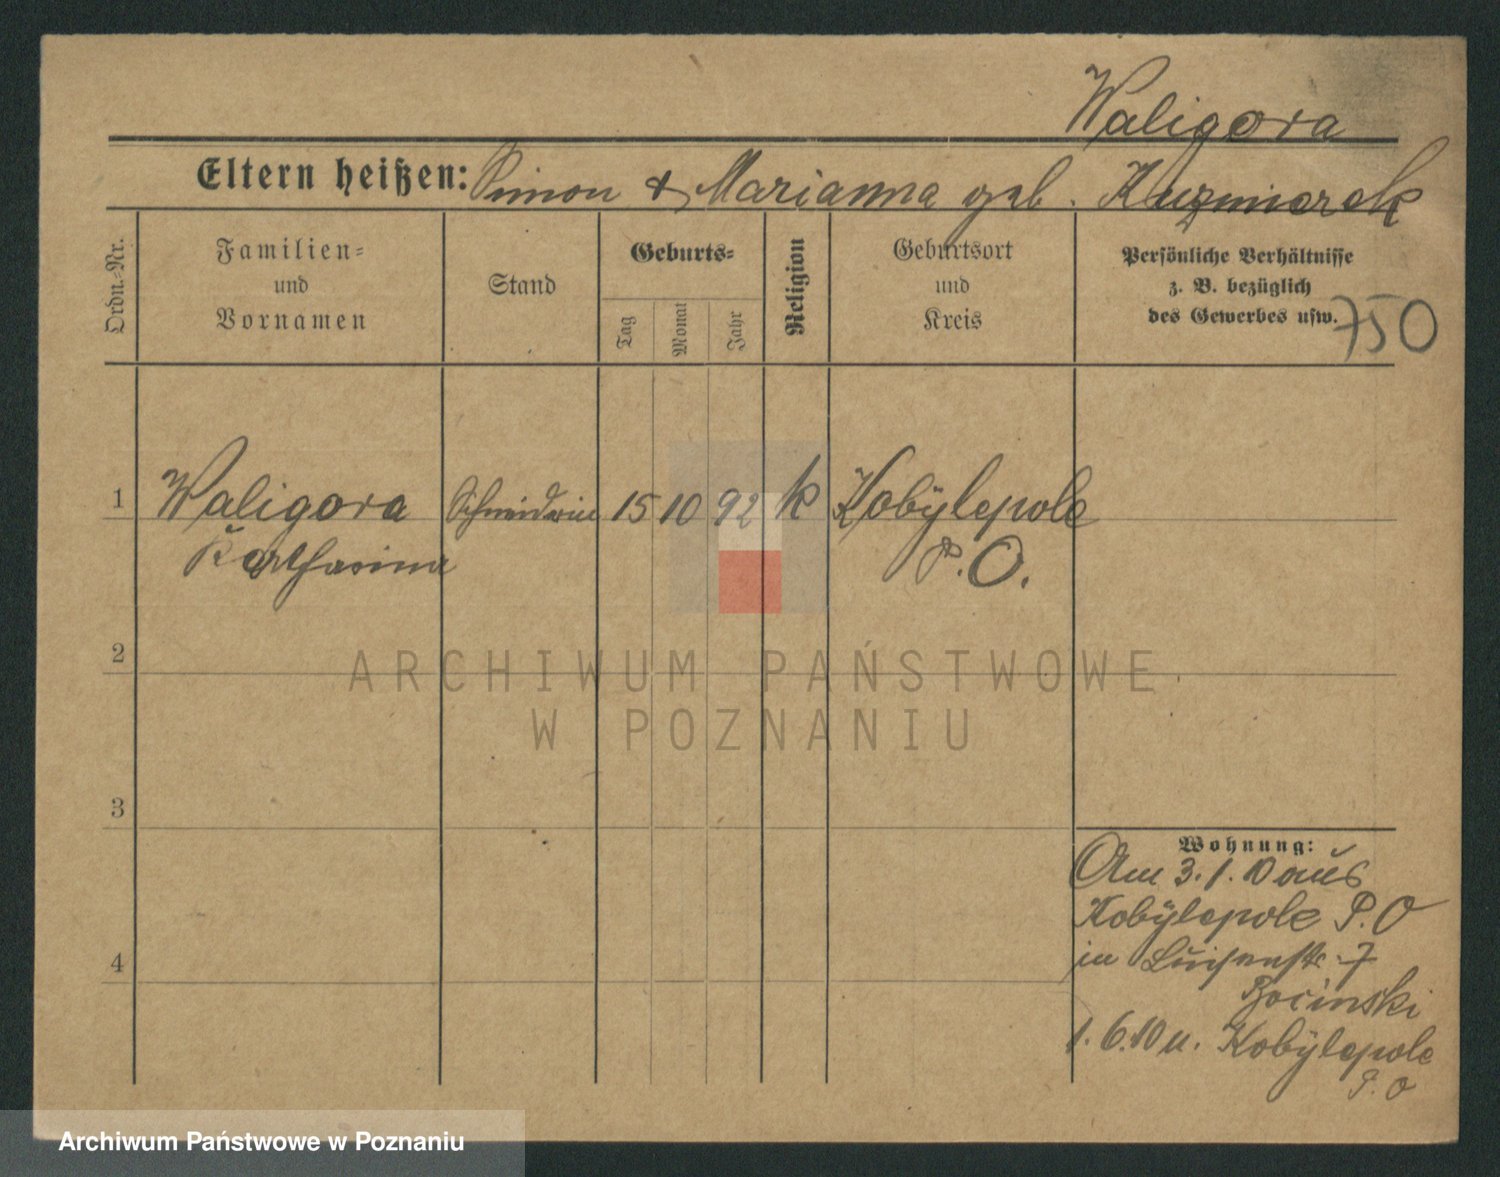 Waligora
Eltern heißen: Simon & Marianna geb. Kuzmierek
Ordn.=Nr.
Familien=
und
Vornamen
Stand
Geburts=
Tag
Monat
Jahr
Religion
Geburtsort
und
Kreis
Persönliche Verhältnisse
z. B. bezüglich
des Gewerbes usw.
750
1
Waligora
Katharina
Schneiderin
15
10
92
k
Kobylepole
P. O.
2
3
4
Wohnung:
Am 3. 1. 10 aus
Kobylepole P. O
in Luisenstr. 7
Bocinski
1. 6. 10 n. Kobylepole
P. O
ARCHIWUM PAŃSTWOWE
W POZNANIU
Archiwum Państwowe w Poznaniu